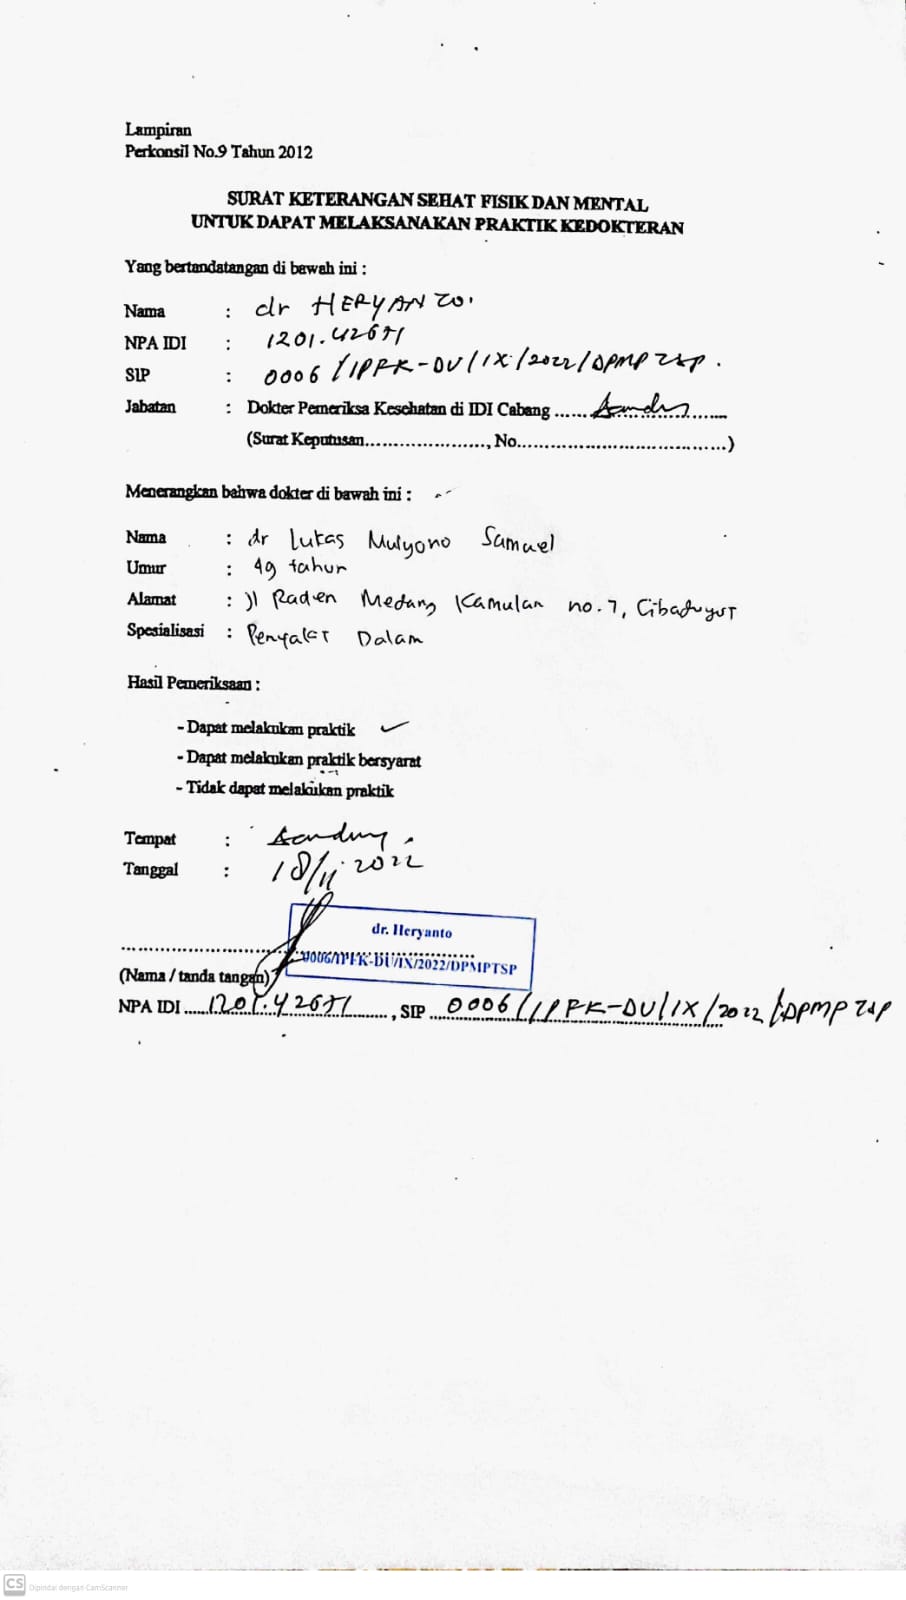 Lampiran
Perkonsil No.9 Tahun 2012
SURAT KETERANGAN SEHAT FISIK DAN MENTAL
UNTUK DAPAT MELAKSANAKAN PRAKTIK KEDOKTERAN
Yang bertandatangan di bawah ini :
Nama : dr HERYANTO.
NPA IDI : 1201.42671
SIP : 0006/IPFK-DU/IX/2022/DPMPTSP.
Jabatan : Dokter Pemeriksa Kesehatan di IDI Cabang ...... Bandung ......
(Surat Keputusan...................., No...................................)
Menerangkan bahwa dokter di bawah ini :
Nama : dr Lukas Mulyono Samuel
Umur : 49 tahun
Alamat : Jl Raden Medang Kamulan no.7, Cibaduyut
Spesialisasi : Penyakit Dalam
Hasil Pemeriksaan :
- Dapat melakukan praktik ✓
- Dapat melakukan praktik bersyarat
- Tidak dapat melakukan praktik
Tempat : Bandung.
Tanggal : 18/11 2022
dr. Heryanto
0006/IPFK-DU/IX/2022/DPMPTSP
(Nama / tanda tangan)
NPA IDI ..... 1201.42671 ......., SIP ... 0006/IPFK-DU/IX/2022/DPMPTSP
CS Dipindai dengan CamScanner